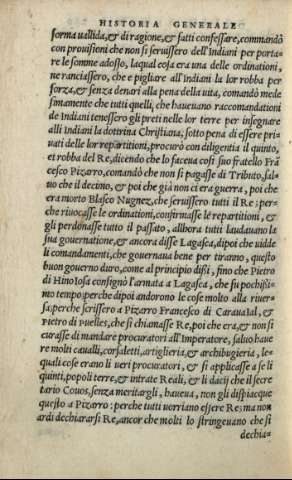 HISTORIA GENERALE
forma uallida, & di ragione, & fatti confessare, commandò
con prouisioni che non si seruissero dell'Indiani per porta-
re le somme adosso, laqual cosa era una delle ordinationi,
ne ranciassero, che e pigliare all'Indiani la lor robba per
forza, & senza denari alla pena della uita, comandò mede
simamente che tutti quelli, che haueuano raccomandationi
de Indiani tenessero gli preti nelle lor terre per insegnare
alli Indiani la dotrina Christiana, sotto pena di essere pri-
uati delle lor repartitioni, procurò con diligentia il quinto,
et robba del Re, dicendo che lo faceua cosi suo fratello Frã
cesco Pizarro, comandò che non si pagasse di Tributo, sal-
uo che il decimo, & poi che già non ci era guerra, poi che
era morto Blasco Nugnez, che seruissero tutti il Re: per-
che riuocasse le ordinationi, confirmasse lè repartitioni, &
gli perdonasse tutto il passato, allhora tutti laudauano la
sua gouernatione, & ancora disse Lagasca, dipoi che uidde
li comandamenti, che gouernaua bene per tiranno, questo
buon gouerno duro, come al principio dissi, fino che Pietro
di Hinoiosa consignò l'armata a Lagasca, che fu pochissi-
mo tempo: perche dipoi andorono le cose molto alla riuer-
sa: perche scrissero a Pizarro Francesco di Carauaial, &
Pietro di Puelles, che si chiamasse Re, poi che era, & non si
curasse di mandare procuratori all'Imperatore, saluo haue
re molti caualli, corsaletti, artiglieria, & archibugieria, le-
quali cose erano li ueri procuratori, & si applicasse a se li
quinti, popoli terre, & intrate Reali, & li dacij che il secre
tario Couos, senza meritargli, haueua, non gli dispiacque
questo a Pizarro: perche tutti uorriano essere Re: ma non
ardi dechiararsi Re, ancor che molti lo stringeuano che si
dechia-